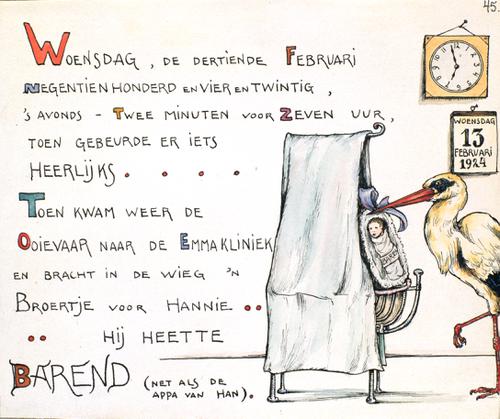 45.
Woensdag, de dertiende Februari
negentienhonderd en vier en twintig,
's avonds - Twee minuten voor Zeven uur,
toen gebeurde er iets
heerlijks . . . . .
Toen kwam weer de
Ooievaar naar de Emmakliniek
en bracht in de wieg 'n
Broertje voor Hannie ..
.. Hij heette
Barend (net als de
appa van Han).
Woensdag
13
Februari
1924